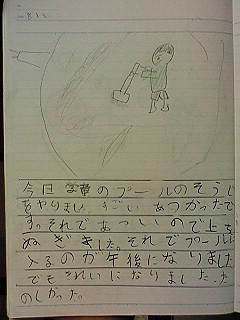 今日 のプールのそうじ
をやりました。すごい あつかったで
す。それであついので上を
ぬぎました。それでプールに
入るのが午後になりました
でもきれいになりました。た
のしかった。